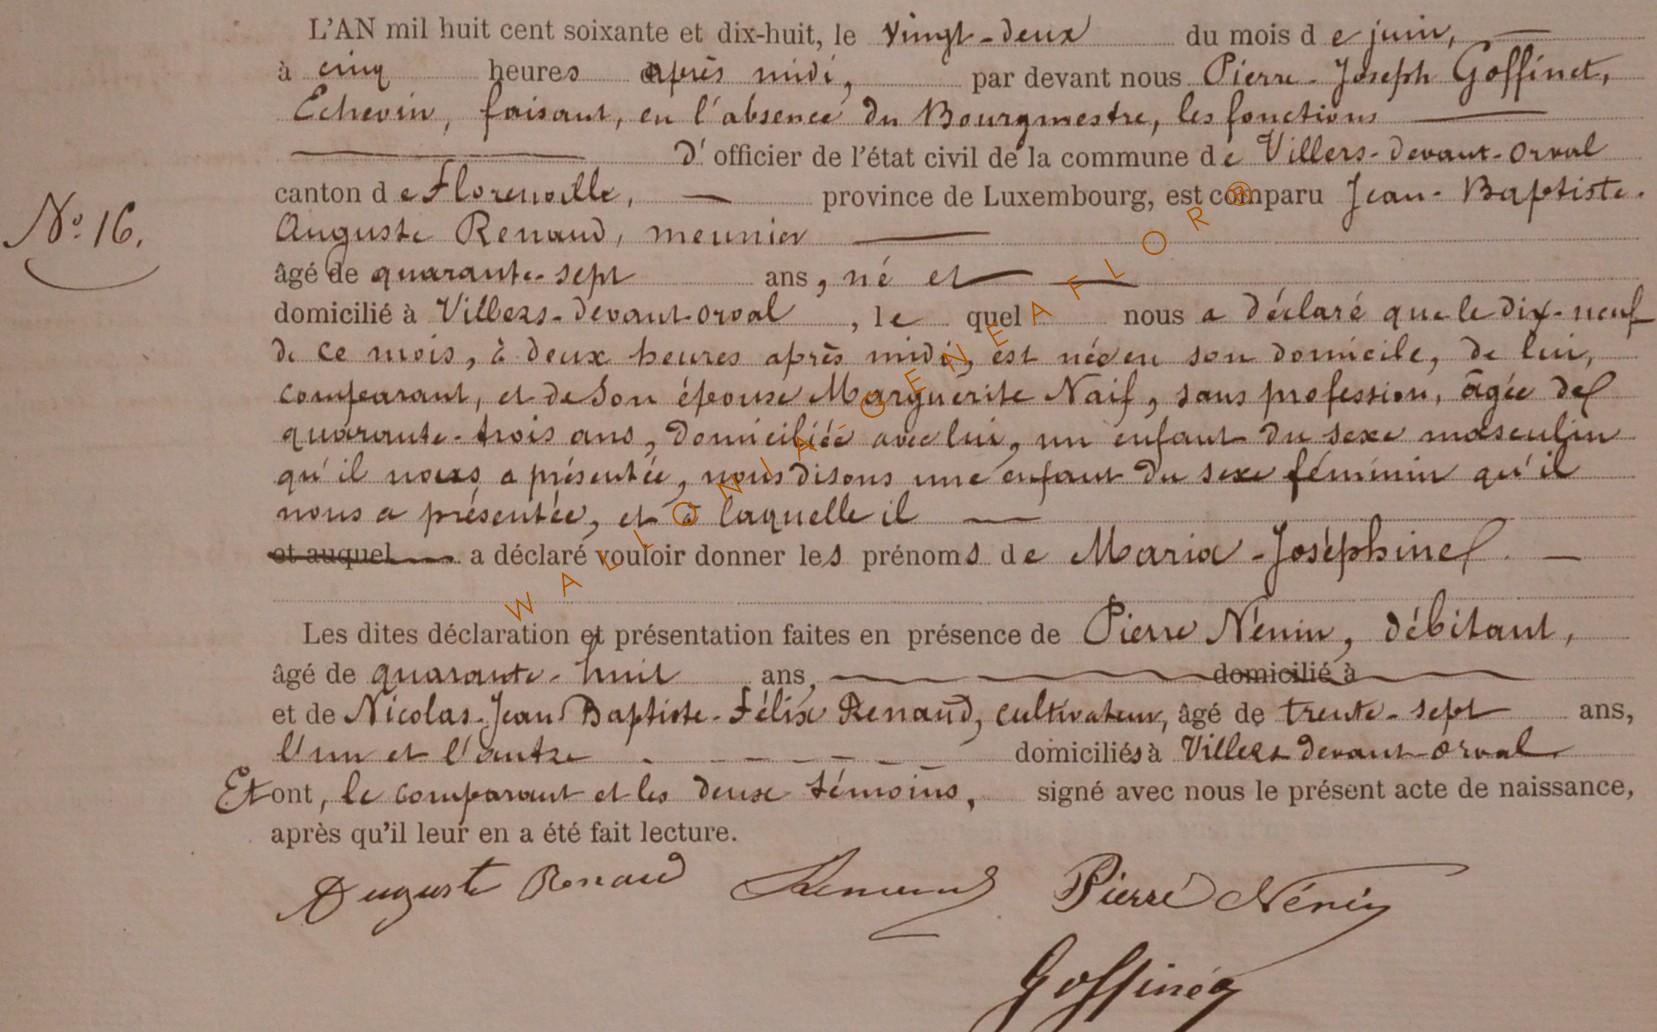 L'AN mil huit cent soixante et dix-huit, le vingt-deux du mois d e juin,
à cinq heures après midi, par devant nous Pierre-Joseph Goffinet,
Echevin, faisant, en l'absence du Bourgmestre, les fonctions
D' officier de l'état civil de la commune de Villers-devant-orval
canton d e Florenville, province de Luxembourg, est comparu Jean-Baptiste-
No. 16.
Auguste Renaud, meunier
âgé de quarante-sept ans, né et
domicilié à Villers-devant-orval, le quel nous a déclaré que le dix-neuf
de ce mois, à deux heures après midi, est née en son domicile, de lui,
comparant, et de Son épouse Marguerite Naif, sans profession, âgée de
quarante-trois ans, domiciliée avec lui, un enfant du sexe masculin
qu'il nous a présentée, nous disons une enfant du sexe féminin qu'il
nous a présentée, et à laquelle il
et auquel a déclaré vouloir donner les prénoms de Maria-Joséphine
Les dites déclaration et présentation faites en présence de Pierre Nénin, débitant,
âgé de quarante-huit ans, domicilié à
et de Nicolas-Jean Baptiste-Félix Renaud, cultivateur, âgé de trente-sept ans,
l'un et l'autre domiciliés à Villers devant-orval
Et ont, le comparant et les deux témoins, signé avec nous le présent acte de naissance,
après qu'il leur en a été fait lecture.
Auguste Renaud Renaud Pierre Nénin
Goffinet
WALLONIA-GENEAFLOR®